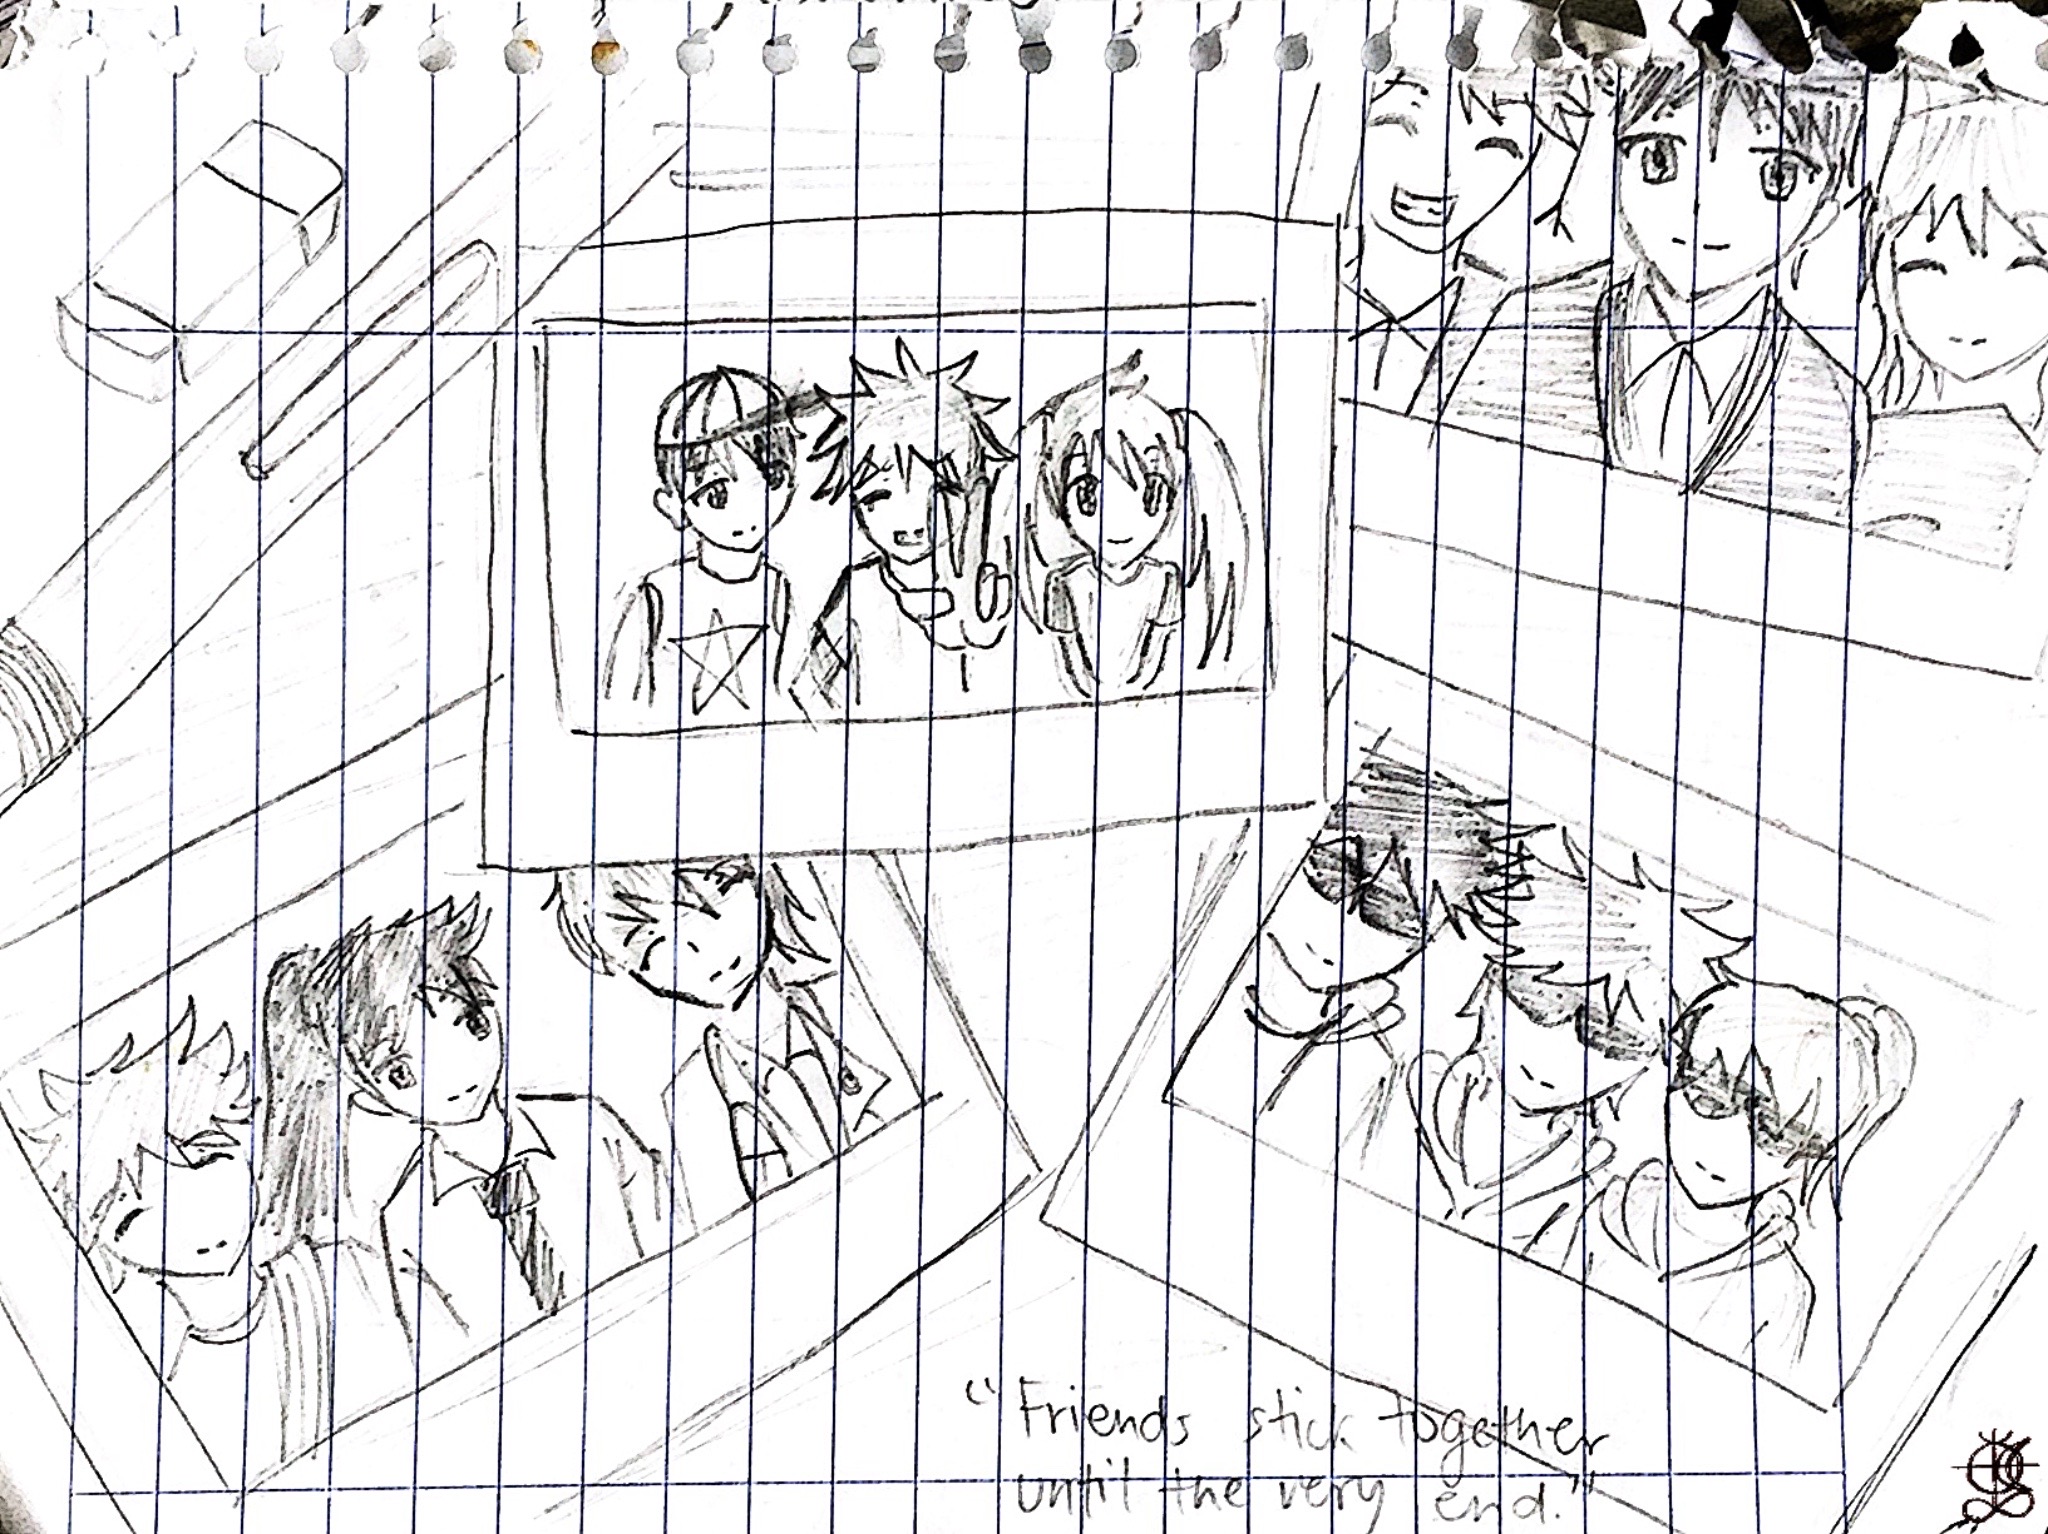 "Friends stick together
until the very end."